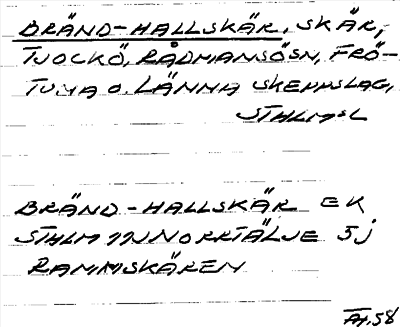 BRÄND-HALLSKÄR, SKÄR,
TJOCKÖ, RÅDMANSÖSN, FRÖ-
TUNA O. LÄNNA SKEPPSLAG,
STHLMSL
BRÄND-HALLSKÄR EK
STHLM INNORRTÄLJE 5j
RAMMSKÄREN
58